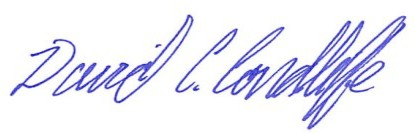 David C. Condliffe